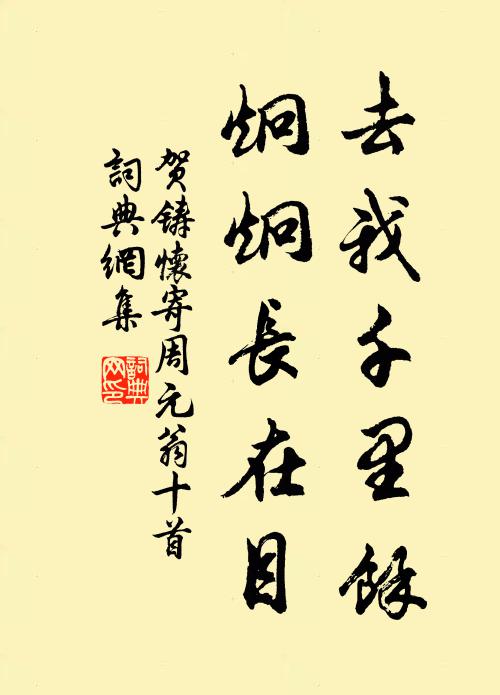 去我千里餘
炯炯長在目
贺鑄懷寄周元翁十首
詞典網集
詞典网印